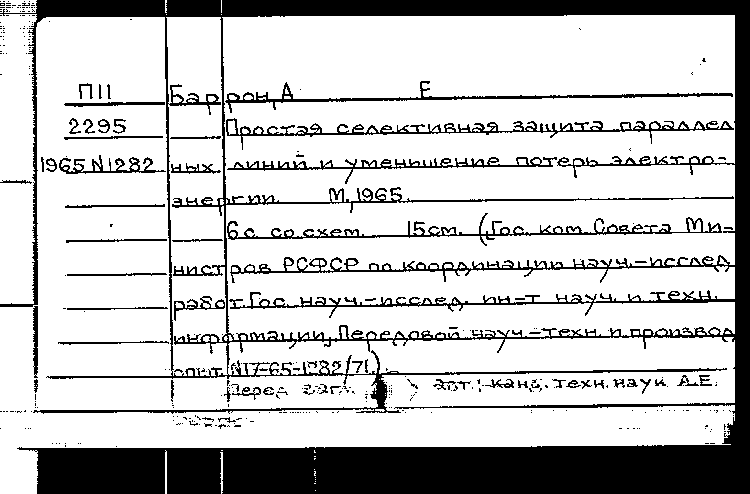 П11 Баррон, А Е
2295 Простая селективная защита параллел
1965 N1282 ных линий и уменьшение потерь электро-
энергии. М, 1965.
6с. со схем. 15см. (Гос. ком. Совета Ми-
нистров РСФСР по координации науч.-исслед.
работ. Гос. науч.-исслед. ин-т науч. и техн.
информации, Передовой науч.-техн. и производ
опыт N17-65-1282/71)
Перед загл. авт.: канд. техн. наук А.Е.